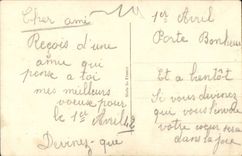 Cher ami
Reçois d'une
amie qui
pense a toi
mes meilleurs
voeux pour
le 1er Avril 42
Devinez-que
1er Avril
Porte Bonheur
Et a bientôt
Si vous devinez
qui vous l'envoie
votre coeur sera
dans la joie